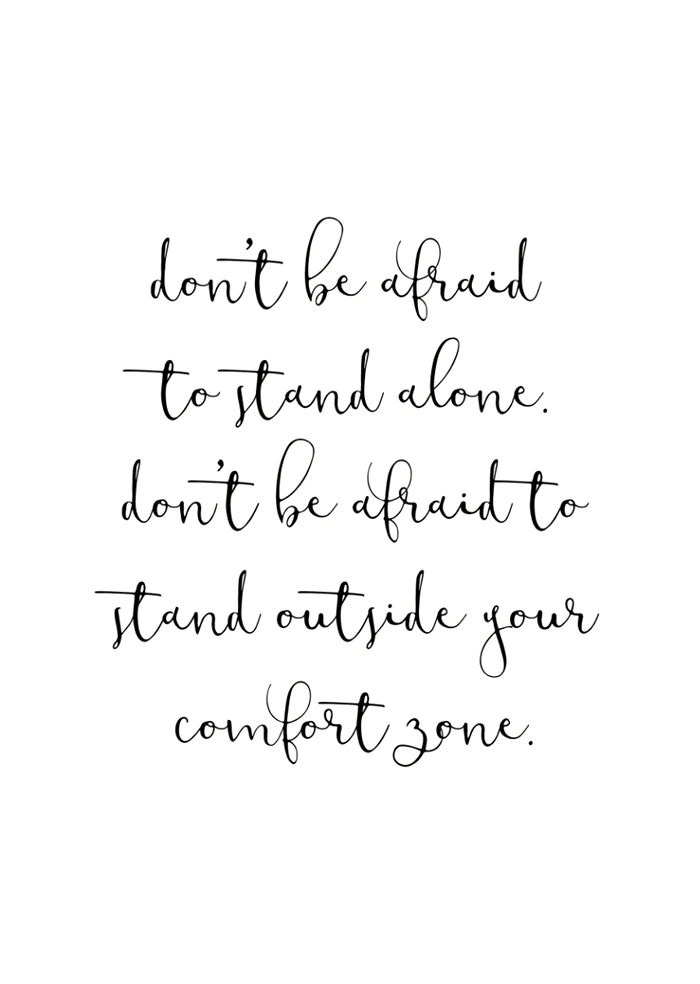 don't be afraid
to stand alone.
don't be afraid to
stand outside your
comfort zone.